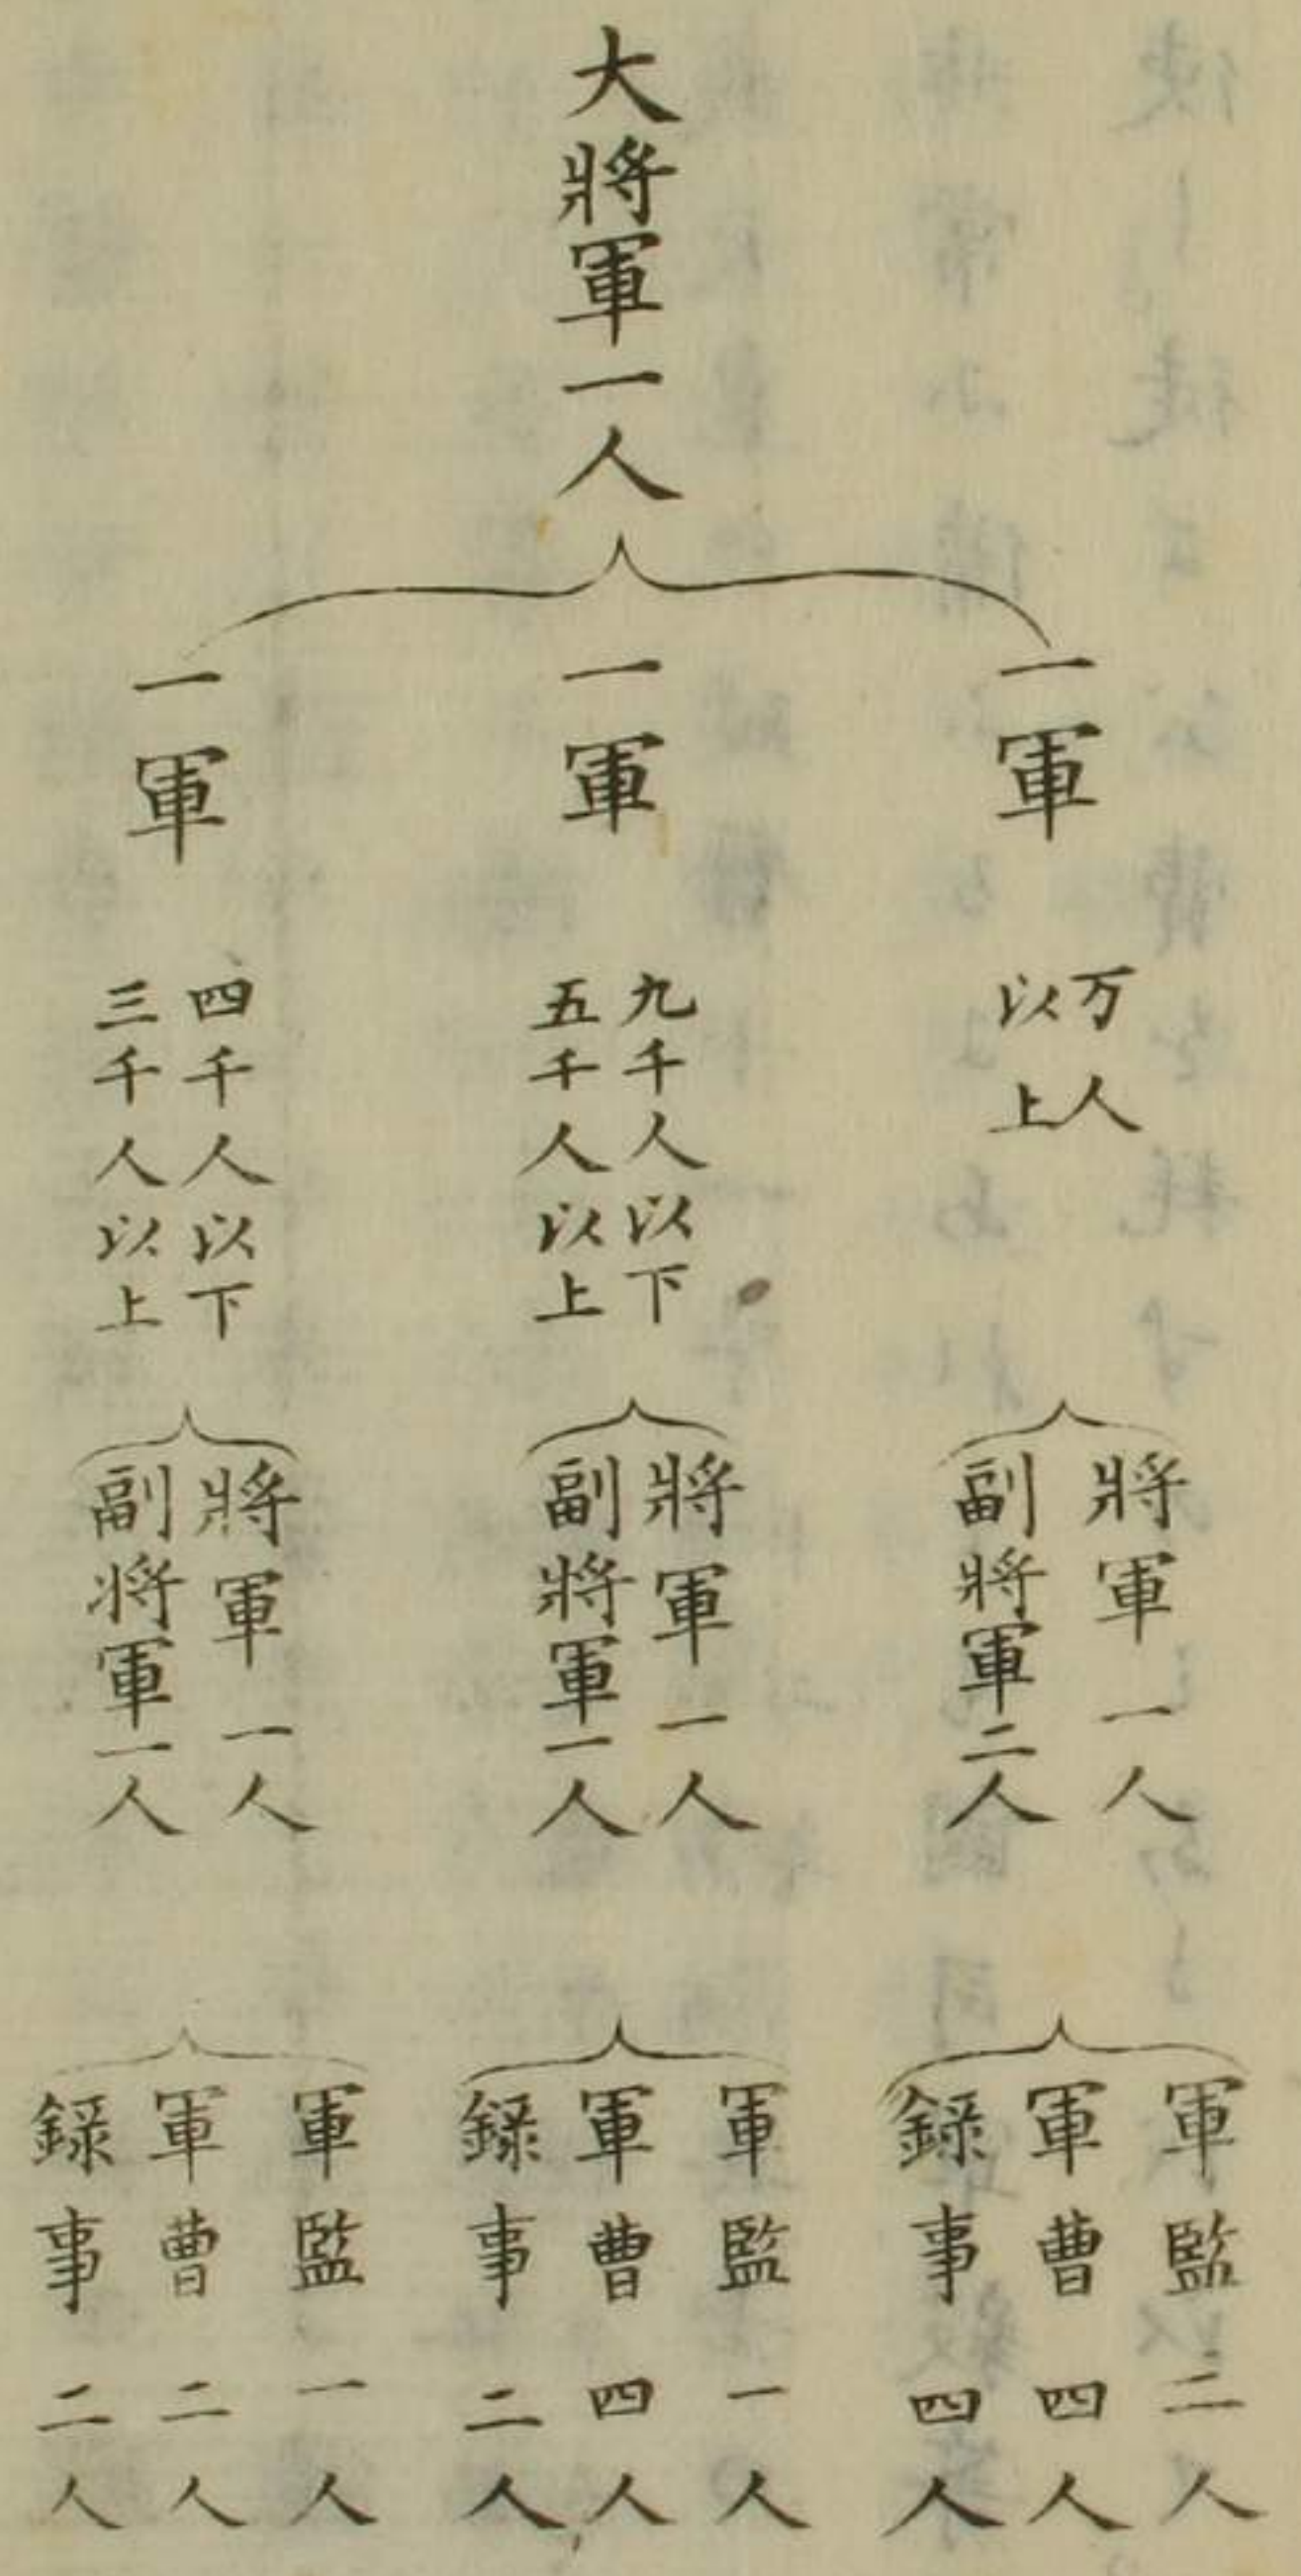 大將軍一人
一軍
万人
以上
將軍一人
副將軍二人
軍監二人
軍曹四人
録事四人
一軍
九千人以下
五千人以上
將軍一人
副將軍一人
軍監一人
軍曹四人
録事二人
一軍
四千人以下
三千人以上
將軍一人
副將軍一人
軍監一人
軍曹二人
録事二人